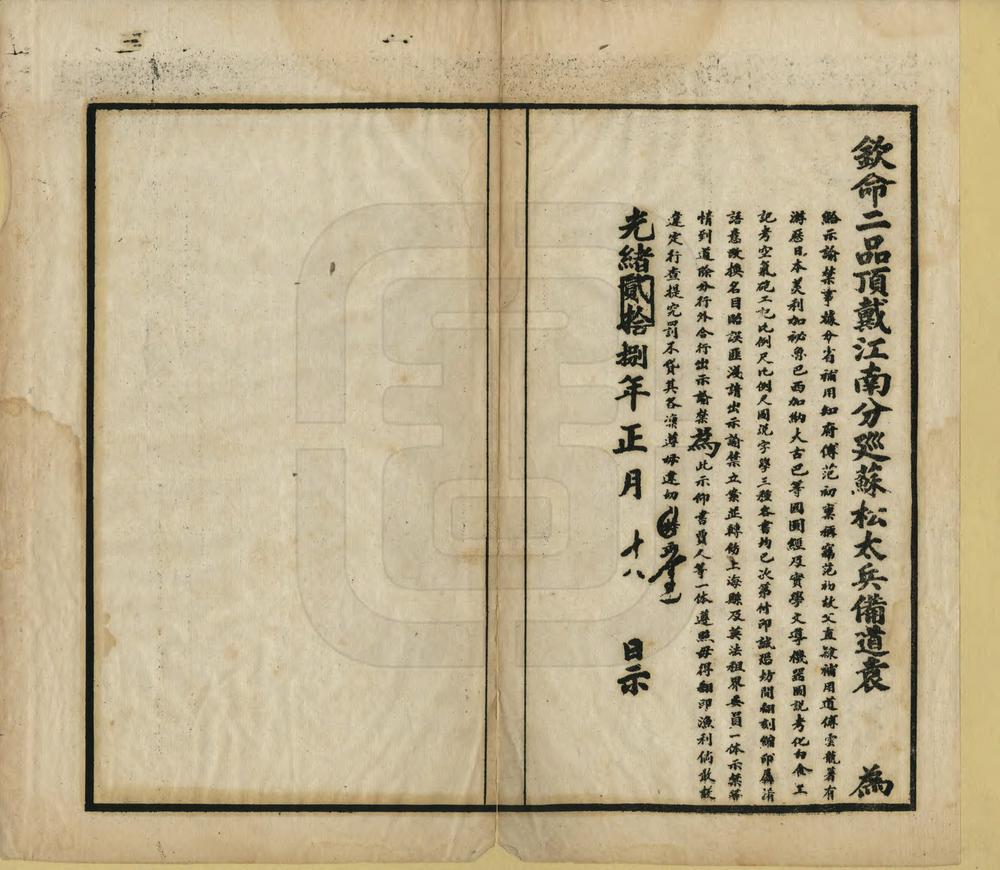 欽命二品頂戴江南分巡蘇松太兵備道袁　為
給示諭禁事據分省補用知府傅范初稟稱竊范初故父直隸補用道傅雲龍著有
游歷日本美利加祕魯巴西加納大古巴等國圖經及實學文導機器圖說考化白食工
記考空氣砲工記比例尺比例尺圖說字學三種各書均已次第付印誠恐坊間翻刻縮印屬淆
語意改換名目貽誤匪淺請出示諭禁立案並轉飭上海縣及英法租界委員一体示禁等
情到道除分行外合行出示諭禁為此示仰書賈人等一体遵照毋得翻印漁利倘敢故
違定行查提究罰不貸其各凜遵毋違切
光緒貳拾捌年正月十八日示